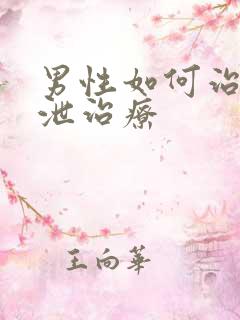 男性如何治
泄治療
王向華